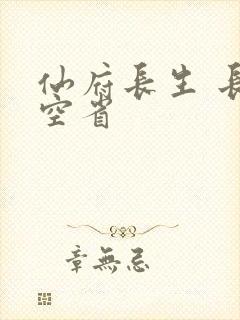 仙府長生 長
空省
章無忌